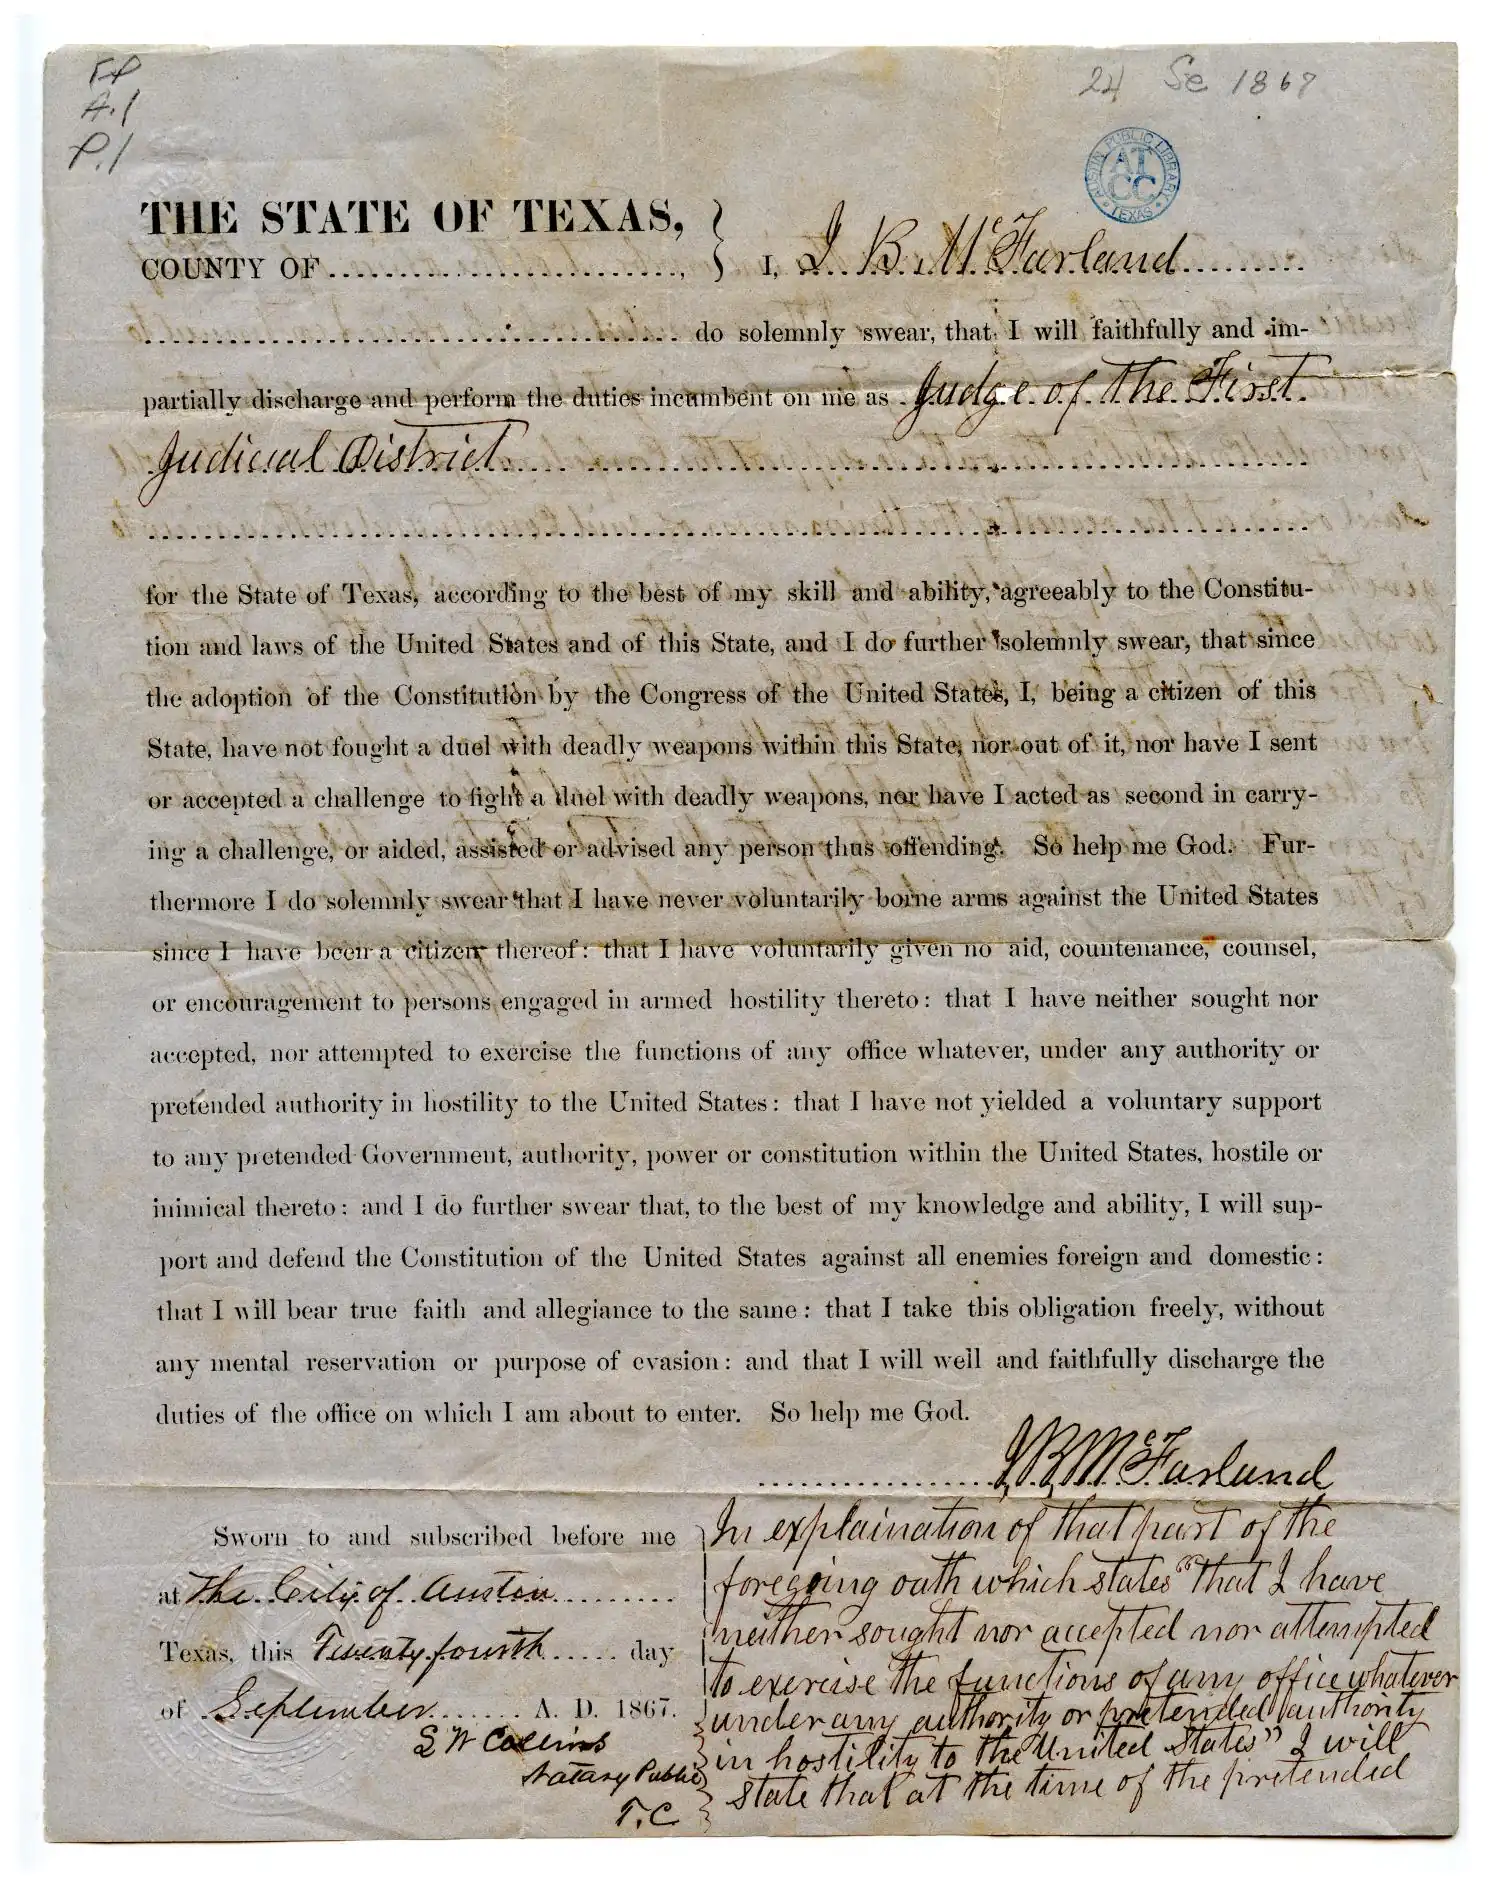 FP
A.1
P.1
24 Se 1867
AUSTIN PUBLIC LIBRARY
AT
CC
TEXAS
THE STATE OF TEXAS,
COUNTY OF
I, I. B. McFarland
do solemnly swear, that I will faithfully and im-
partially discharge and perform the duties incumbent on me as Judge of the First
Judicial District
for the State of Texas, according to the best of my skill and ability, agreeably to the Constitu-
tion and laws of the United States and of this State, and I do further solemnly swear, that since
the adoption of the Constitution by the Congress of the United States, I, being a citizen of this
State, have not fought a duel with deadly weapons within this State, nor out of it, nor have I sent
or accepted a challenge to fight a duel with deadly weapons, nor have I acted as second in carry-
ing a challenge, or aided, assisted or advised any person thus offending. So help me God. Fur-
thermore I do solemnly swear that I have never voluntarily borne arms against the United States
since I have been a citizen thereof: that I have voluntarily given no aid, countenance, counsel,
or encouragement to persons engaged in armed hostility thereto: that I have neither sought nor
accepted, nor attempted to exercise the functions of any office whatever, under any authority or
pretended authority in hostility to the United States: that I have not yielded a voluntary support
to any pretended Government, authority, power or constitution within the United States, hostile or
inimical thereto: and I do further swear that, to the best of my knowledge and ability, I will sup-
port and defend the Constitution of the United States against all enemies foreign and domestic:
that I will bear true faith and allegiance to the same: that I take this obligation freely, without
any mental reservation or purpose of evasion: and that I will well and faithfully discharge the
duties of the office on which I am about to enter. So help me God.
I. B. McFarland
Sworn to and subscribed before me
at The City of Austin
Texas, this Twenty fourth day
of September A. D. 1867.
S W Collins
Notary Public
T. C
In explaination of that part of the
foregoing oath which states "that I have
neither sought nor accepted nor attempted
to exercise the functions of any office whatever
under any authority or pretended authority
in hostility to the United States" I will
state that at the time of the pretended